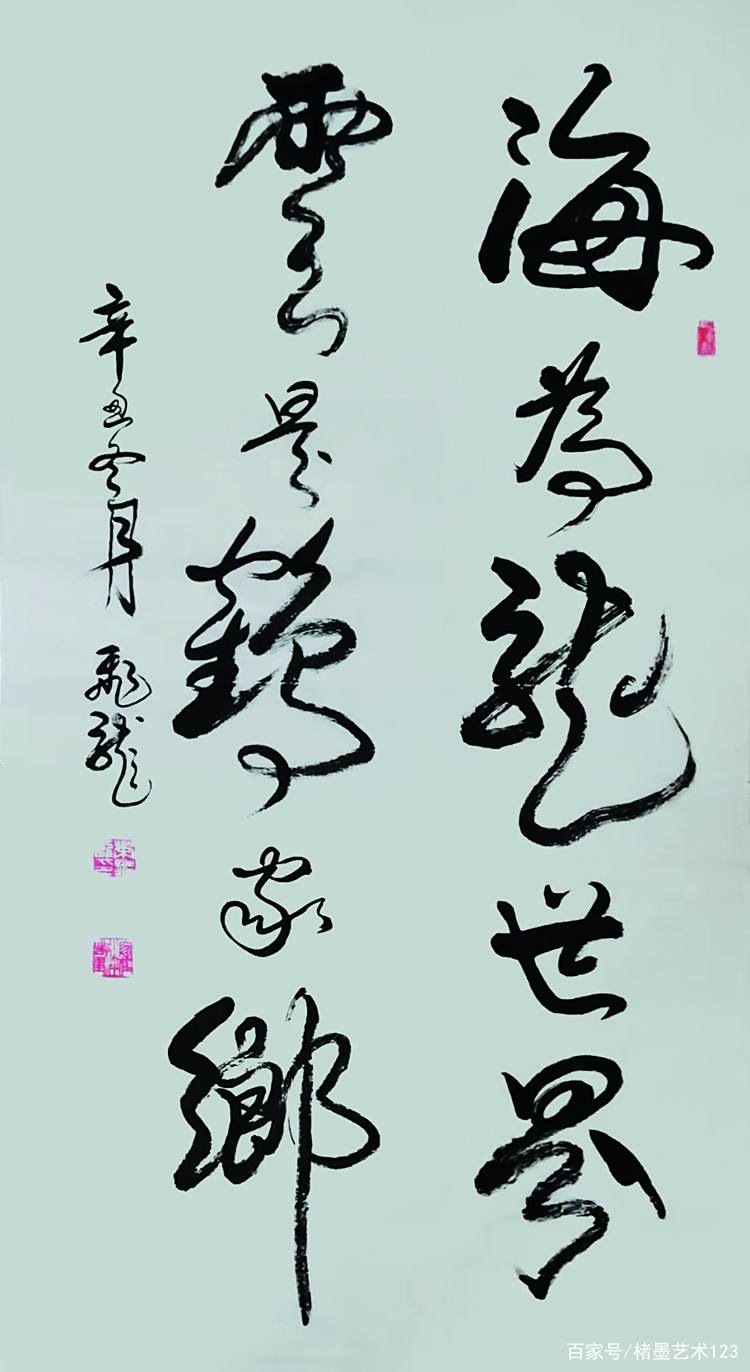 海為龍世界
雲是鶴家鄉
辛丑冬月 飛龍
百家号/楮墨艺术123